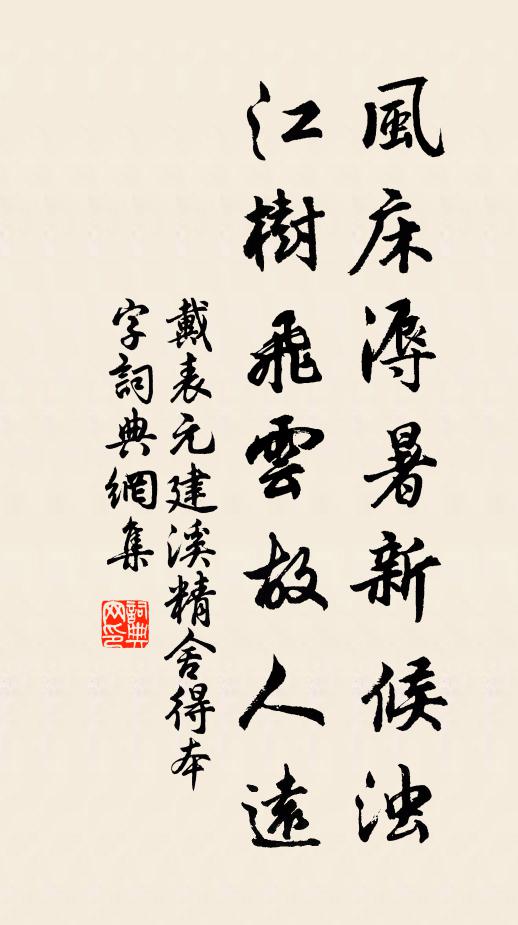 風床溽暑新候浊
江樹飛雲故人遠
戴表元建溪精舍得本
字詞典網集
詞典網印